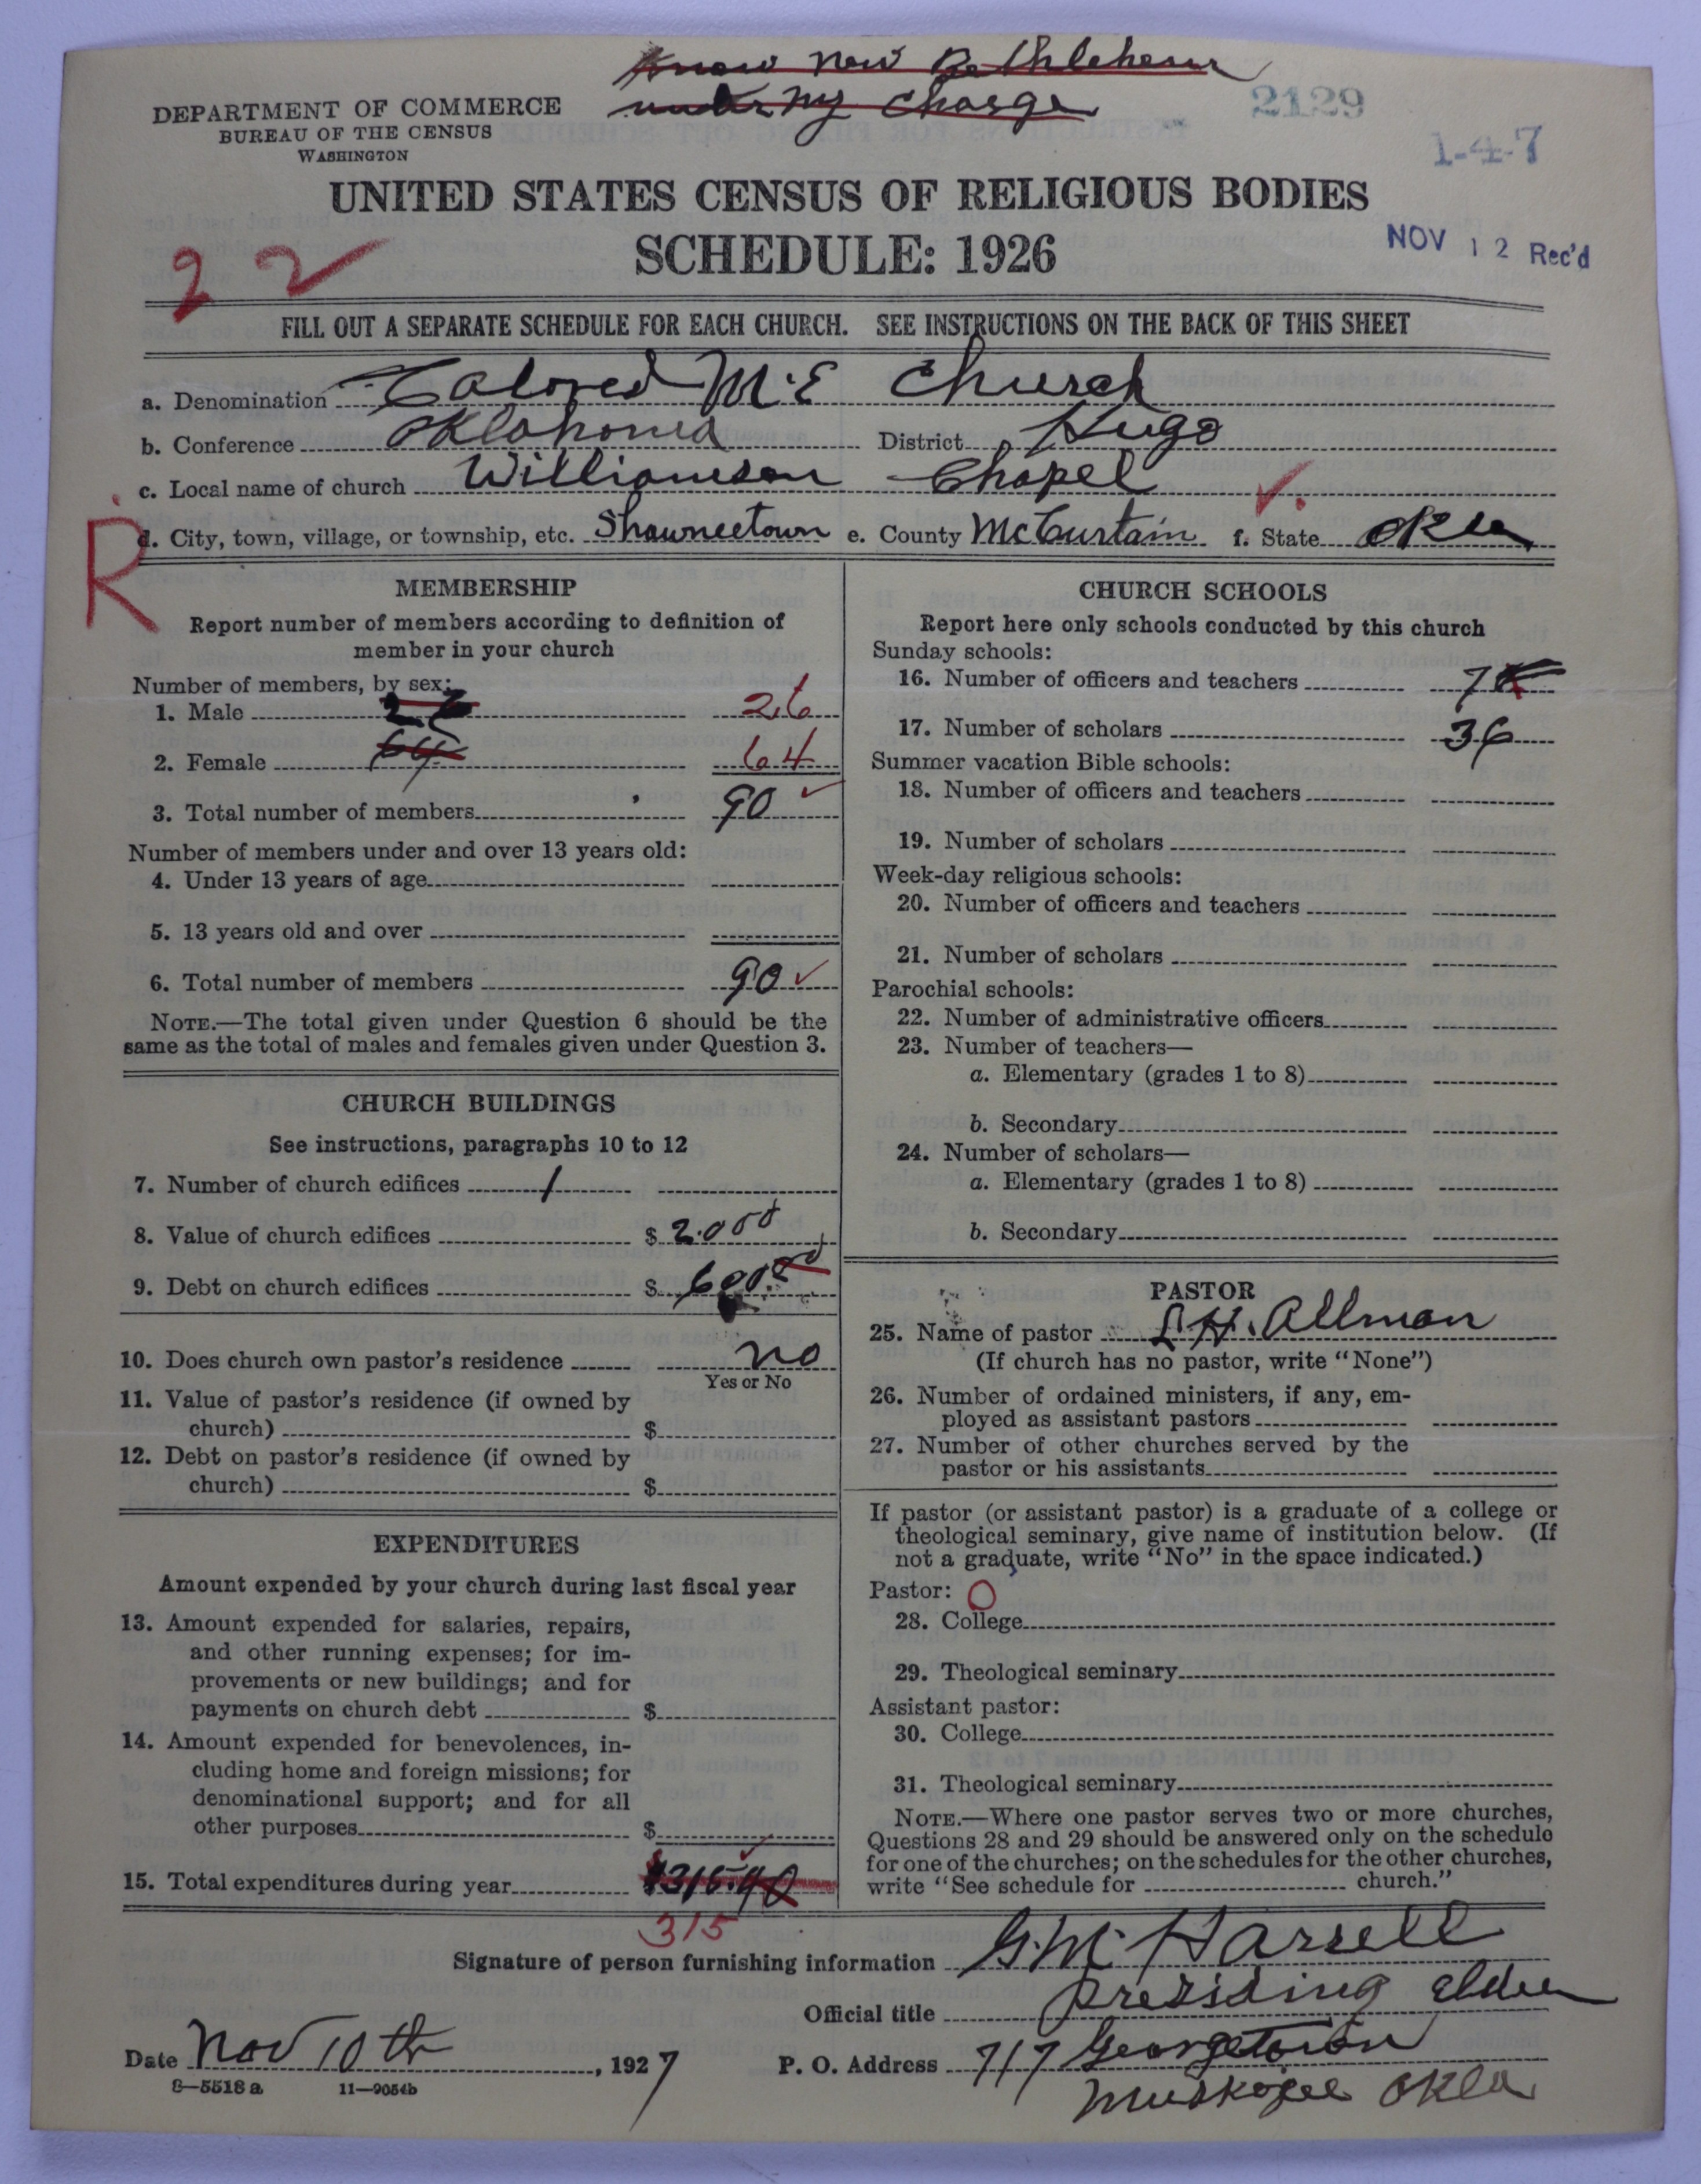 Know new Bethlehem
under my charge
2129
1-4-7
DEPARTMENT OF COMMERCE
BUREAU OF THE CENSUS
WASHINGTON
UNITED STATES CENSUS OF RELIGIOUS BODIES
SCHEDULE: 1926
NOV 12 Rec'd
22
FILL OUT A SEPARATE SCHEDULE FOR EACH CHURCH. SEE INSTRUCTIONS ON THE BACK OF THIS SHEET
a. Denomination Colored M.E Church
b. Conference Oklahoma District Hugo
c. Local name of church Williamson Chapel
R
d. City, town, village, or township, etc. Shawneetown e. County McCurtain f. State Okla
MEMBERSHIP
Report number of members according to definition of
member in your church
Number of members, by sex:
1. Male 26 26
2. Female 64 64
3. Total number of members 90
Number of members under and over 13 years old:
4. Under 13 years of age
5. 13 years old and over
6. Total number of members 90
NOTE.—The total given under Question 6 should be the
same as the total of males and females given under Question 3.
CHURCH BUILDINGS
See instructions, paragraphs 10 to 12
7. Number of church edifices 1
8. Value of church edifices $ 2.000
9. Debt on church edifices $ 600.00
10. Does church own pastor's residence no
Yes or No
11. Value of pastor's residence (if owned by
church) $
12. Debt on pastor's residence (if owned by
church) $
EXPENDITURES
Amount expended by your church during last fiscal year
13. Amount expended for salaries, repairs,
and other running expenses; for im-
provements or new buildings; and for
payments on church debt $
14. Amount expended for benevolences, in-
cluding home and foreign missions; for
denominational support; and for all
other purposes $
15. Total expenditures during year $315.40
315
CHURCH SCHOOLS
Report here only schools conducted by this church
Sunday schools:
16. Number of officers and teachers 7
17. Number of scholars 36
Summer vacation Bible schools:
18. Number of officers and teachers
19. Number of scholars
Week-day religious schools:
20. Number of officers and teachers
21. Number of scholars
Parochial schools:
22. Number of administrative officers
23. Number of teachers—
a. Elementary (grades 1 to 8)
b. Secondary
24. Number of scholars—
a. Elementary (grades 1 to 8)
b. Secondary
PASTOR
25. Name of pastor L H. Allman
(If church has no pastor, write "None")
26. Number of ordained ministers, if any, em-
ployed as assistant pastors
27. Number of other churches served by the
pastor or his assistants
If pastor (or assistant pastor) is a graduate of a college or
theological seminary, give name of institution below. (If
not a graduate, write "No" in the space indicated.)
Pastor: O
28. College
29. Theological seminary
Assistant pastor:
30. College
31. Theological seminary
NOTE.—Where one pastor serves two or more churches,
Questions 28 and 29 should be answered only on the schedule
for one of the churches; on the schedules for the other churches,
write "See schedule for church."
Signature of person furnishing information G.M. Harrell
Official title presiding elder
Date Nov 10th, 1927 P. O. Address 717 Georgetown
Muskogee Okla
8—5518a 11—9054b